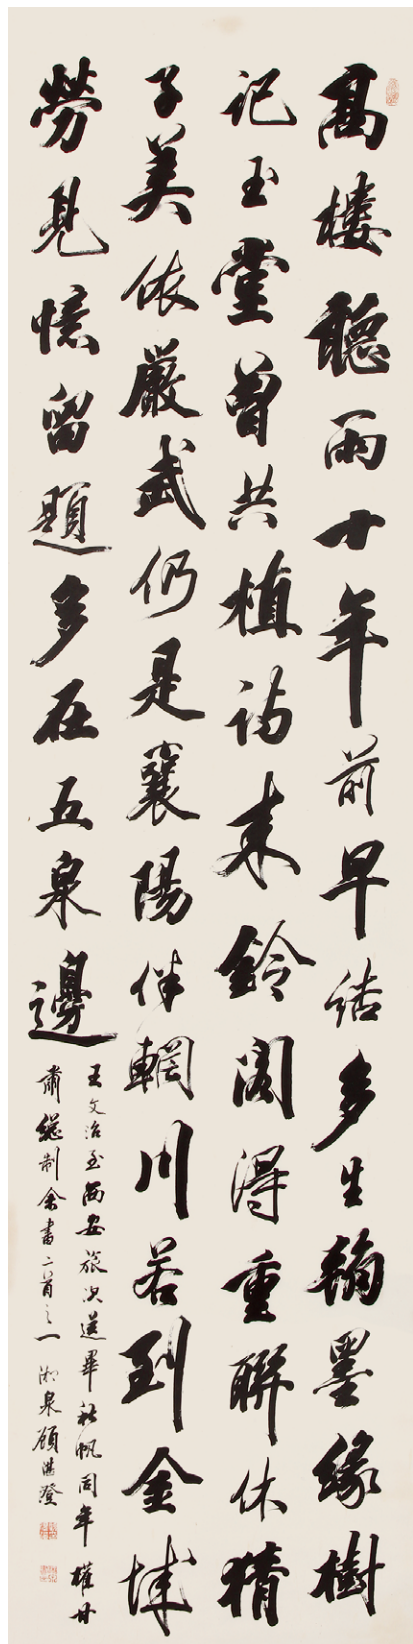 高樓聽雨十年前早結多生翰墨緣樹
記玉堂曾共植詩來鈴閣得重聯休猜
子美依嚴武仍是襄陽伴輞川若到金城
勞見憶留題多在五泉邊
王文治至西安旅次送畢秋帆同年擢甘
肅總制余書二首之一 湘泉顧